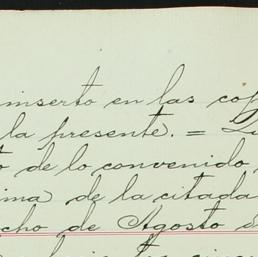 inserto en las cop
la presente. =
o de lo convenido
ima de la citada
cho de Agosto d